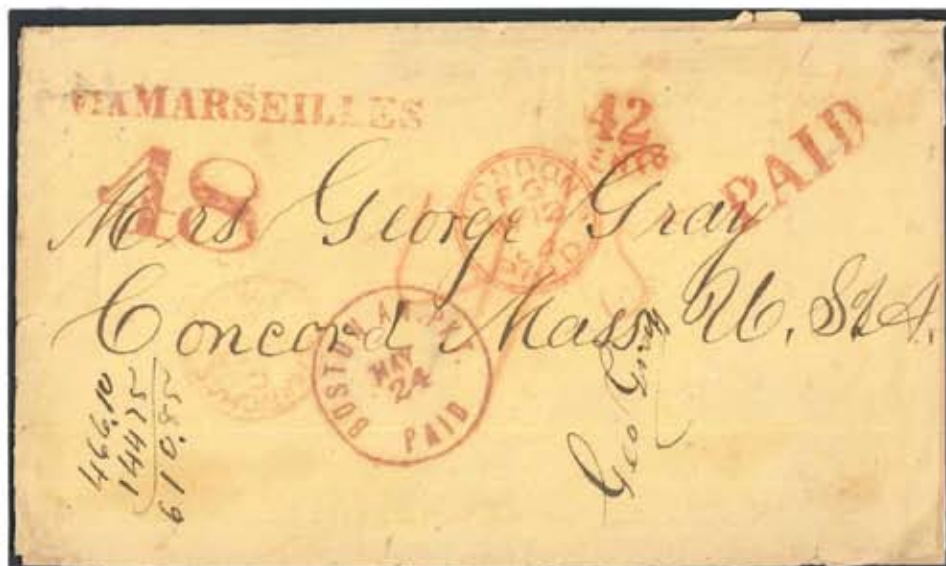 VIA MARSEILLES
42
CENTS
PAID
48
LONDON
PAID
Mrs George Gray
Concord Mass. U. St A.
BOSTON AM. PKT.
MAY
24
PAID
Geo Gray
466.10
144 75
610.85